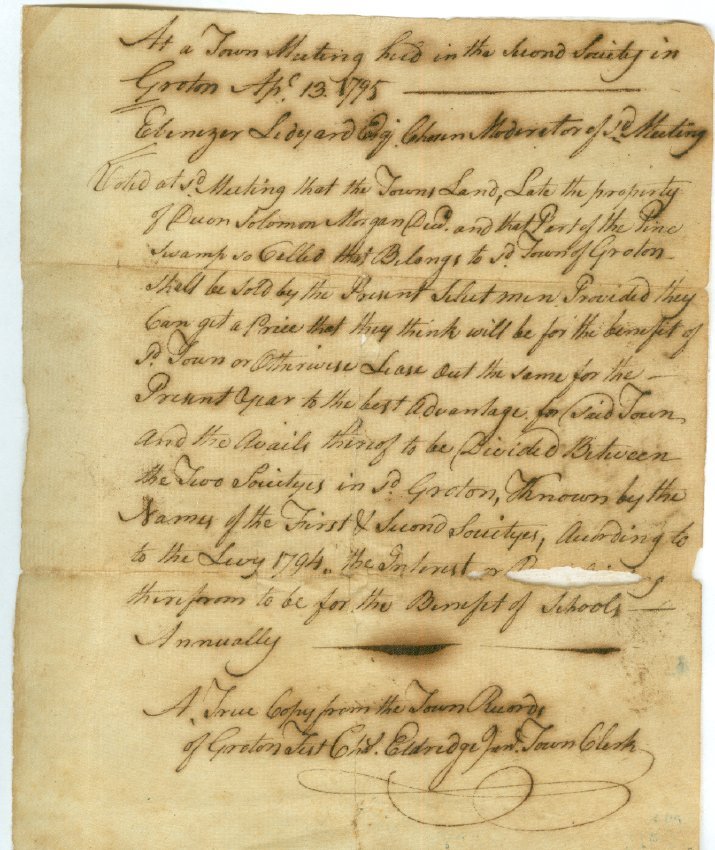 At a Town Meeting held in the Second Society in
Groton Apl. 13. 1795
Ebenezer Ledyard Esqr. Chosen Moderator of sd. Meeting
Voted at sd. Meeting that the Towns Land, Late the property
of Deon Solomon Morgan Decd. and that Part of the Pine
Swamp so Called that Belongs to sd. Town of Groton
Shall be Sold by the Present Select men Provided they
Can get a Price that they think will be for the benefit of
sd. Town or Otherwise Lease out the same for the
Present Year to the best Advantage for Said Town
And the Avails thereof to be Divided Between
the Two Societyes in sd. Groton, Known by the
Names of the First & Second Societyes, According to
to the Levy 1794. the Interest or
therefrom to be for the Benefit of Schools
Annually
A True Copy from the Town Records
of Groton Test Chs. Eldredge Junr. Town Clerk